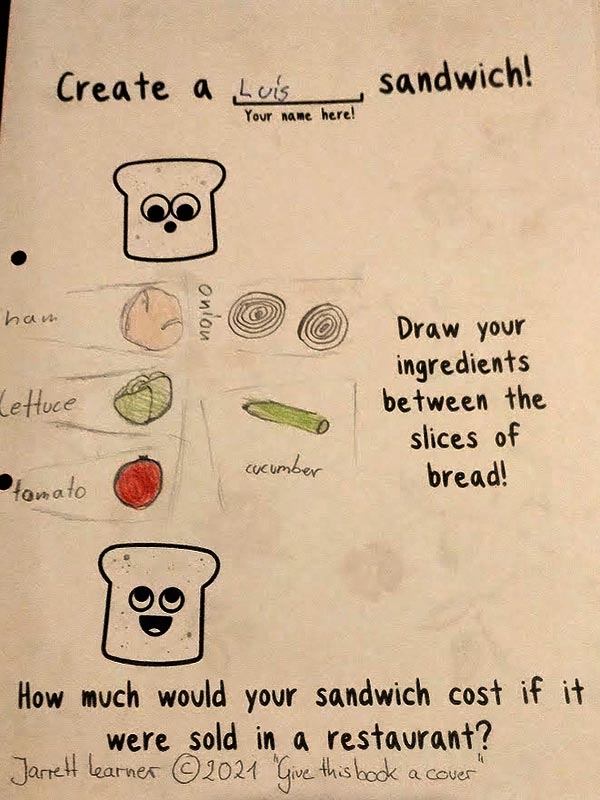 Create a Luís sandwich!
Your name here!
ham
onion
Lettuce
cucumber
tomato
Draw your
ingredients
between the
slices of
bread!
How much would your sandwich cost if it
were sold in a restaurant?
Jarrett Learner ©2021 "Give this book a cover"